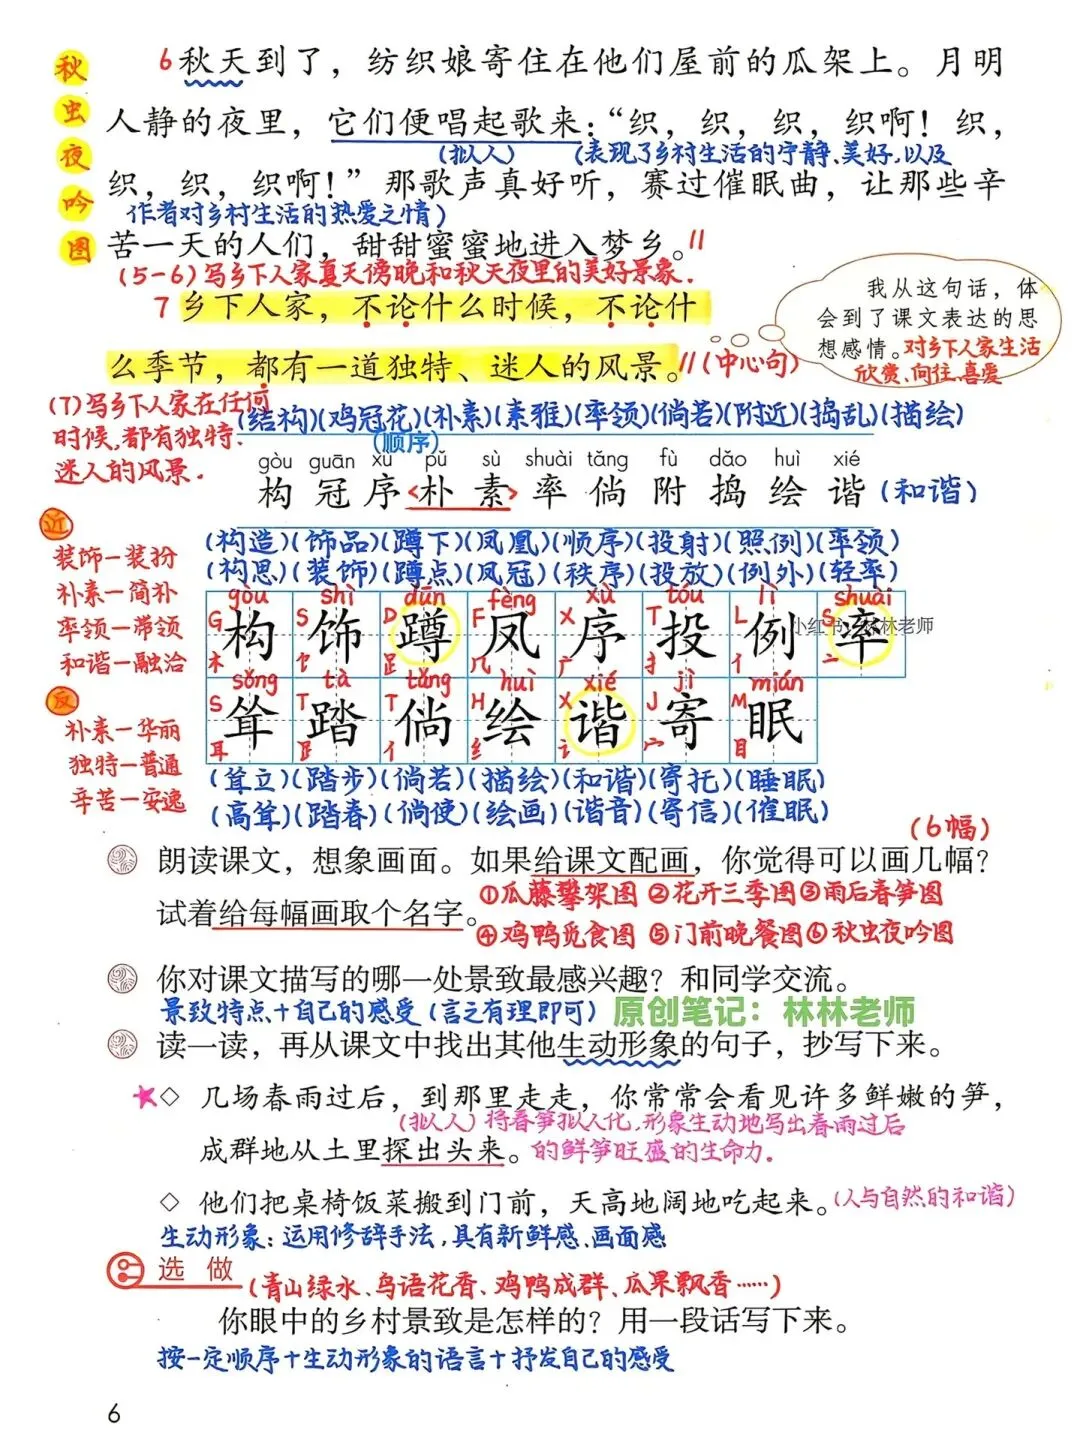 秋虫夜吟图
6 秋天到了，纺织娘寄住在他们屋前的瓜架上。月明
人静的夜里，它们便唱起歌来：“织，织，织，织啊！织，
(拟人) (表现了乡村生活的宁静、美好,以及
织，织，织啊！”那歌声真好听，赛过催眠曲，让那些辛
作者对乡村生活的热爱之情)
苦一天的人们，甜甜蜜蜜地进入梦乡。//
(5-6)写乡下人家夏天傍晚和秋天夜里的美好景象.
7 乡下人家，不论什么时候，不论什
么季节，都有一道独特、迷人的风景。//(中心句)
我从这句话，体
会到了课文表达的思
想感情。对乡下人家生活
欣赏、向往、喜爱
(7)写乡下人家在任何
时候,都有独特.
迷人的风景.
(结构)(鸡冠花)(朴素)(素雅)(率领)(倘若)(附近)(捣乱)(描绘)
(顺序)
gòu guān xù pǔ sù shuài tǎng fù dǎo huì xié
构 冠 序 <朴 素> 率 倘 附 捣 绘 谐 (和谐)
近
装饰—装扮
朴素—简朴
率领—带领
和谐—融洽
反
朴素—华丽
独特—普通
辛苦—安逸
(构造)(饰品)(蹲下)(凤凰)(顺序)(投射)(照例)(率领)
(构思)(装饰)(蹲点)(凤冠)(秩序)(投放)(例外)(轻率)
gòu shì dūn fèng xù tóu lì shuài
G S D F X T L S
构 饰 蹲 凤 序 投 例 率
木 饣 𧾷 几 广 扌 亻 亠
小红书 林林老师
sǒng tà tǎng huì xié jì mián
S T T H X J M
耸 踏 倘 绘 谐 寄 眠
耳 𧾷 亻 纟 讠 宀 目
(耸立)(踏步)(倘若)(描绘)(和谐)(寄托)(睡眠)
(高耸)(踏春)(倘使)(绘画)(谐音)(寄信)(催眠)
(6幅)
朗读课文，想象画面。如果给课文配画，你觉得可以画几幅？
试着给每幅画取个名字。①瓜藤攀架图 ②花开三季图 ③雨后春笋图
④鸡鸭觅食图 ⑤门前晚餐图 ⑥秋虫夜吟图
你对课文描写的哪一处景致最感兴趣？和同学交流。
景致特点+自己的感受(言之有理即可) 原创笔记：林林老师
读一读，再从课文中找出其他生动形象的句子，抄写下来。
★◇ 几场春雨过后，到那里走走，你常常会看见许多鲜嫩的笋，
(拟人) 将春笋拟人化,形象生动地写出春雨过后
成群地从土里探出头来。的鲜笋旺盛的生命力.
◇ 他们把桌椅饭菜搬到门前，天高地阔地吃起来。(人与自然的和谐)
生动形象:运用修辞手法,具有新鲜感、画面感
选做 (青山绿水、鸟语花香、鸡鸭成群、瓜果飘香……)
你眼中的乡村景致是怎样的？用一段话写下来。
按一定顺序+生动形象的语言+抒发自己的感受
6